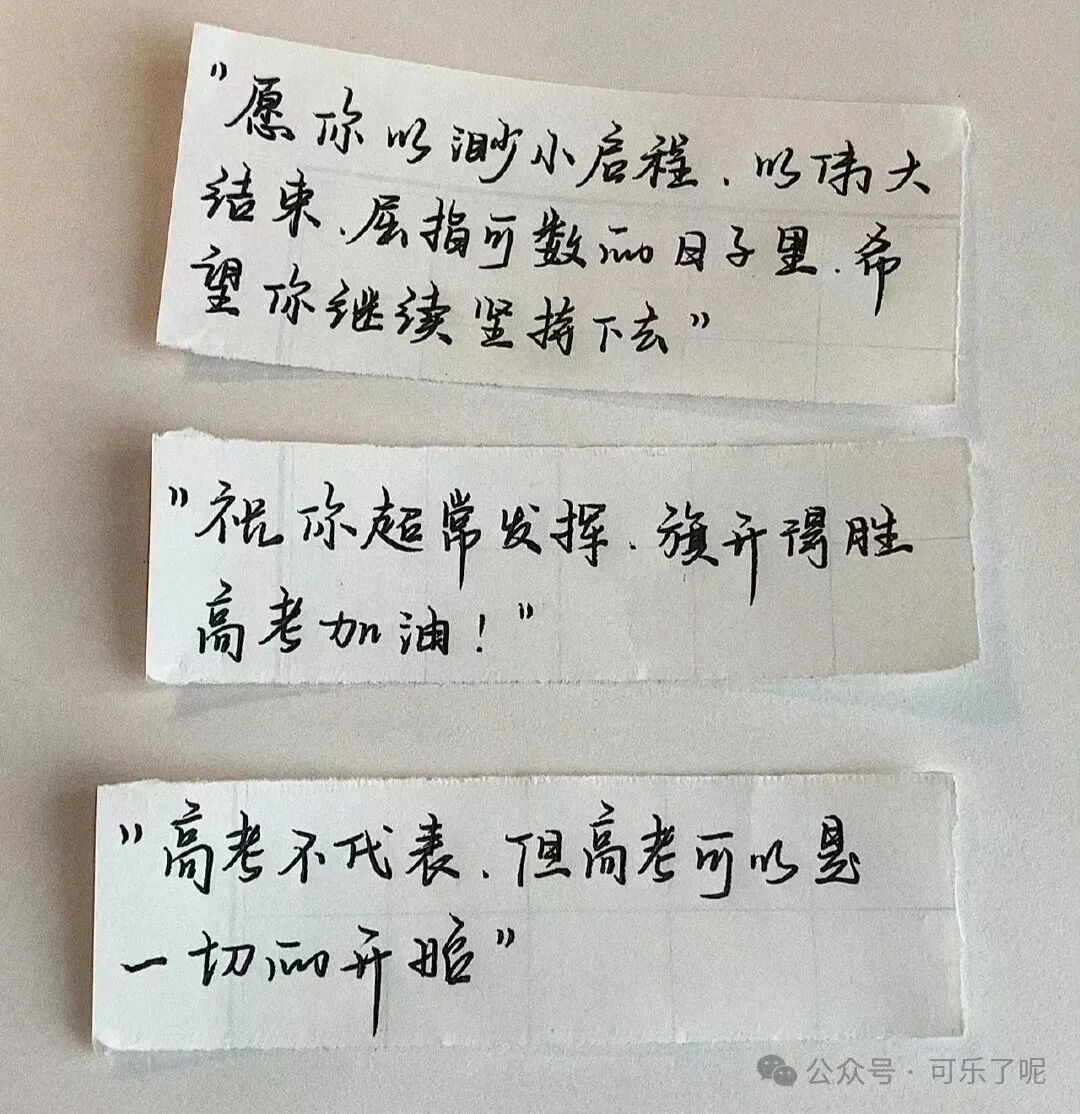 "愿你以渺小启程、以伟大
结束、屈指可数的日子里、希
望你继续坚持下去"
"祝你超常发挥、旗开得胜
高考加油！"
"高考不代表、但高考可以是
一切的开始"
公众号·可乐了呢